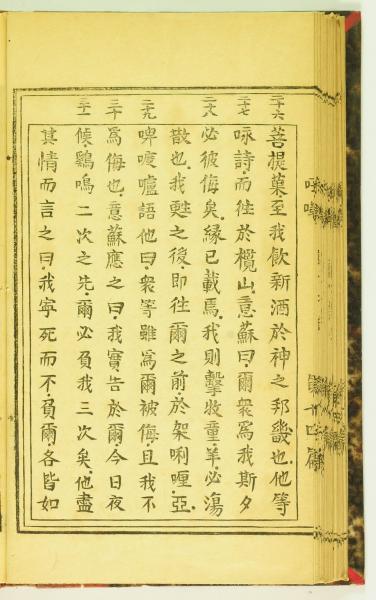 二十六 菩提菓至我飲新酒於神之邦畿也他等
二十七 咏詩而往於欖山意蘇曰爾衆為我斯夕
二十八 必彼侮矣縁已載焉我則擊牧童羊必蕩
散也我甦之後即往爾之前於架唎哩亞
二十九 啤嚧語他曰衆等雖為爾被侮且我不
三十 為侮也意蘇應之曰我實告於爾今日夜
三十一 倏鷄鳴二次之先爾必負我三次矣他盡
其情而言之曰我寧死而不負爾各皆如